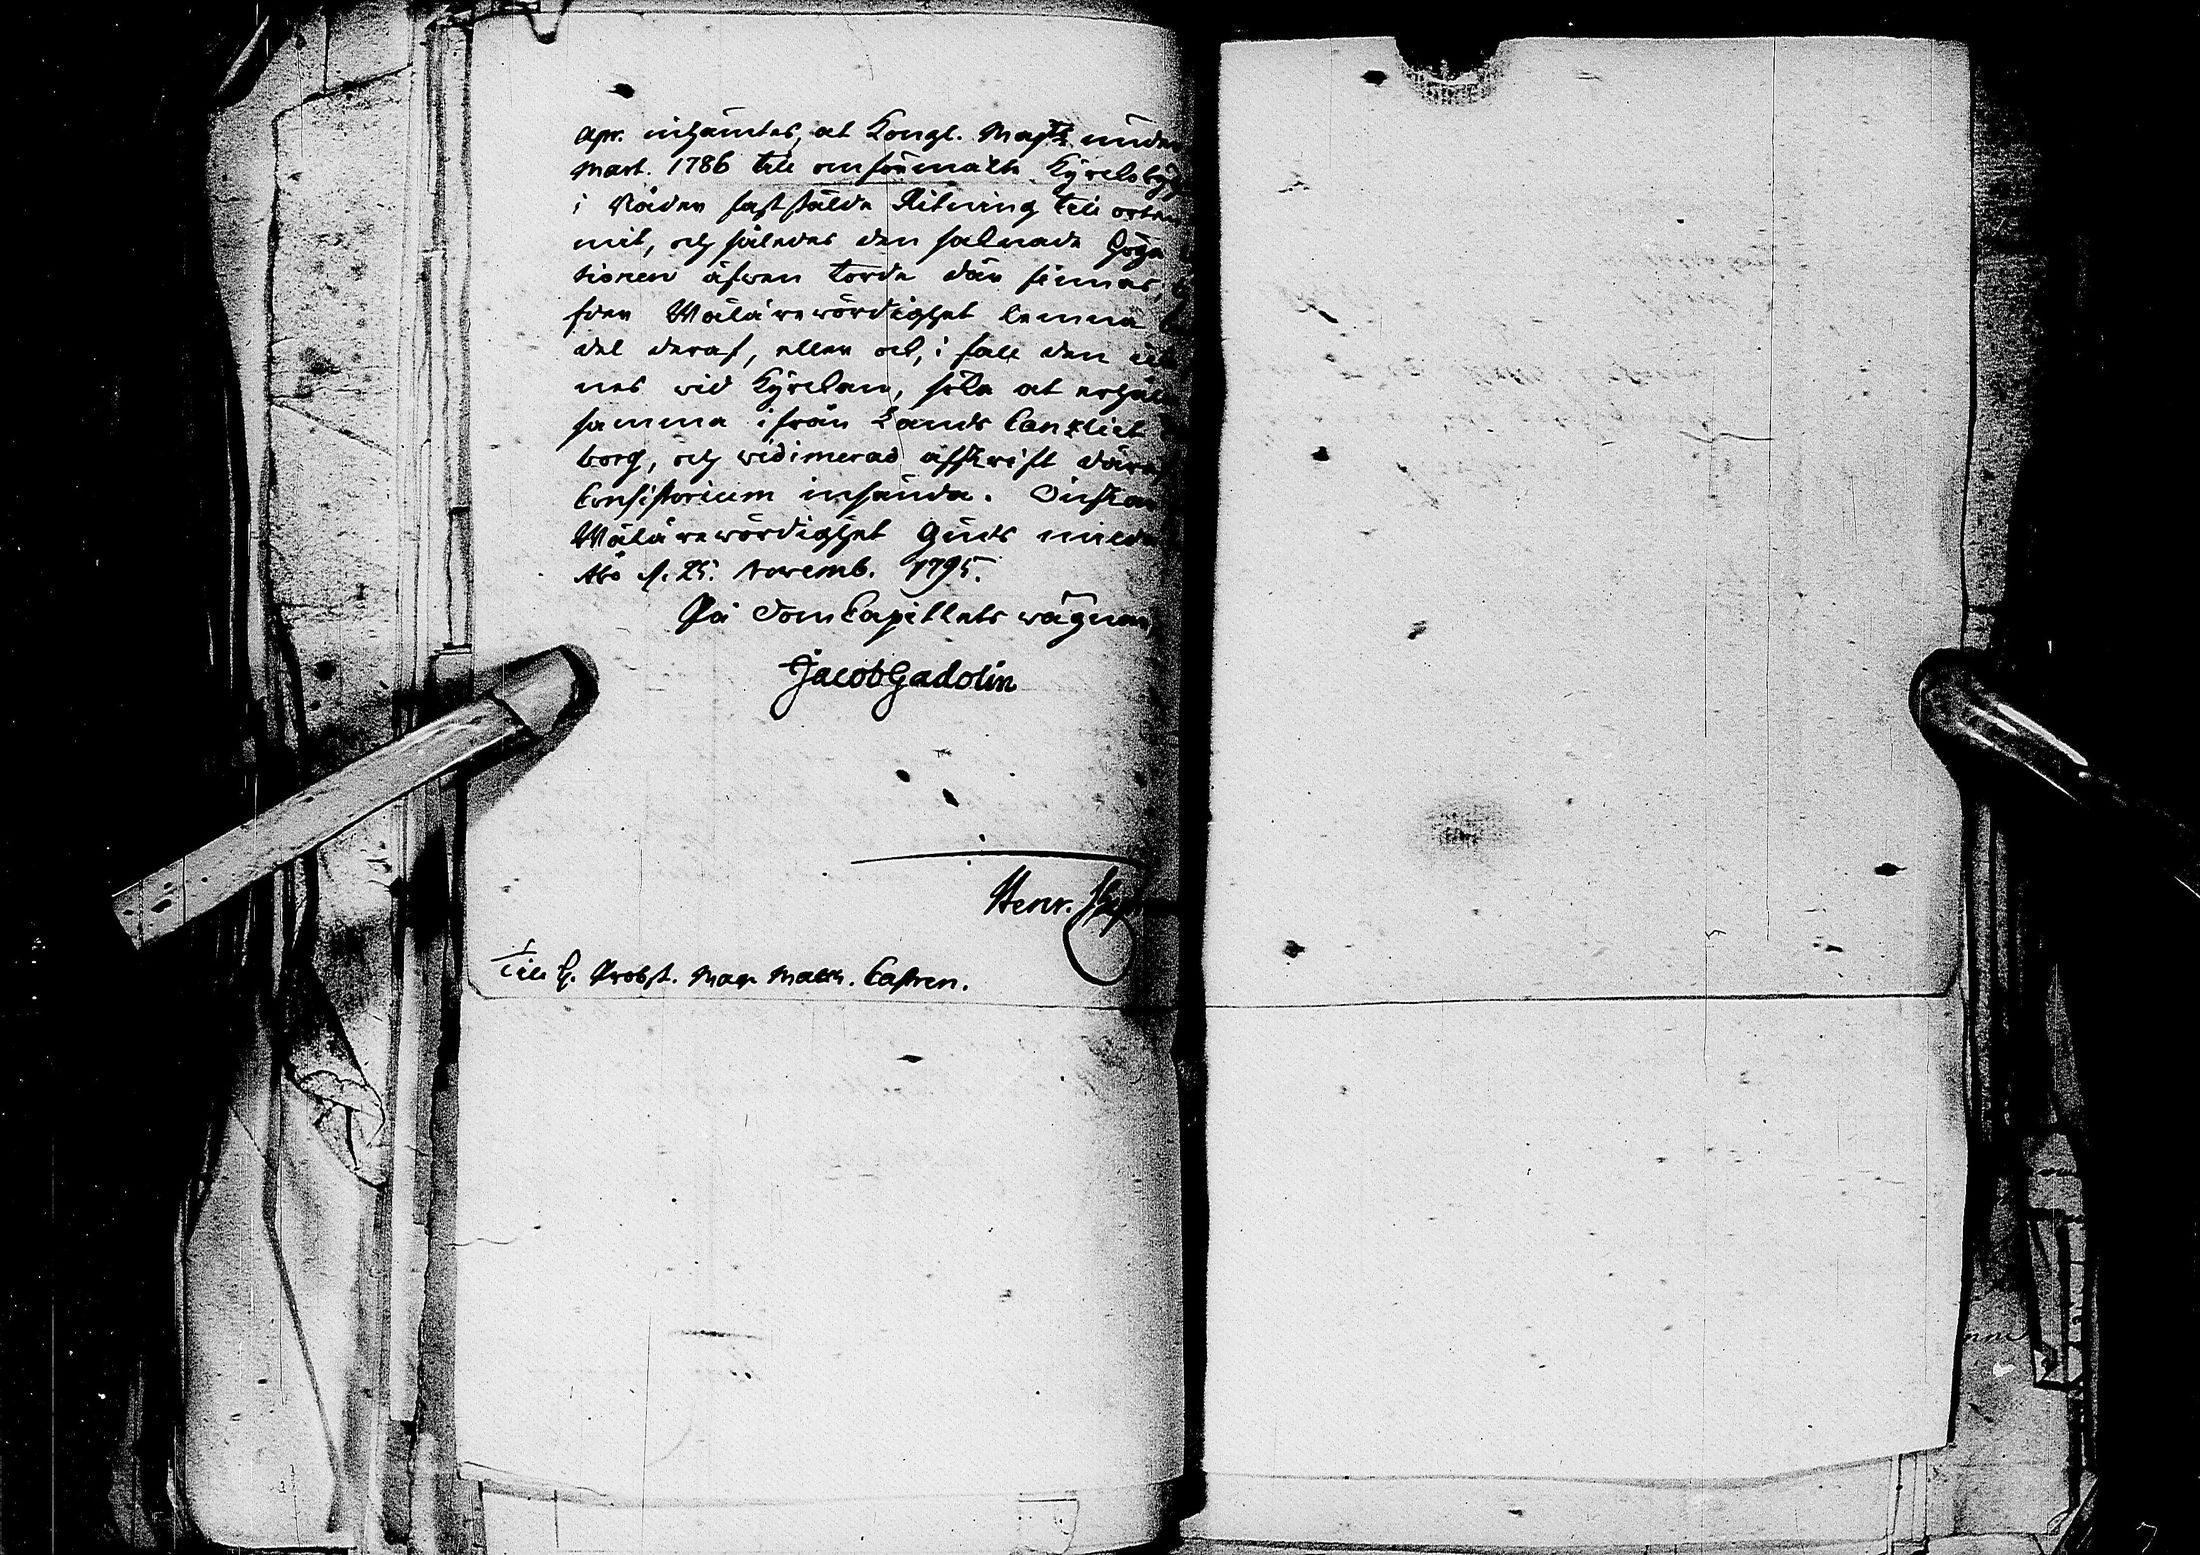 apr. inhämtes, at Kongl. Majts under
Mart. 1786 till omförmälte Kyrcloby
i Nåder faststälde Ritning till orten
mit, och således den saknade höga
tionen äfwen torde där finnas,
Eder Wälärewördighet lemna
del deraf, eller ock, i fall den ick
nes wid Kyrckan, söka at erhåll
samma ifrån Lands Canzliet
borg, och widimerad afskrift däraf
Consistorium insända. Önskar
Wälärewördighet Guds milda
Åbo d. 25. Novemb. 1795.
På DomCapitlets wägnar,
Jacob Gadolin
Henr.
Till H. Probst. Mag Math. Castren.